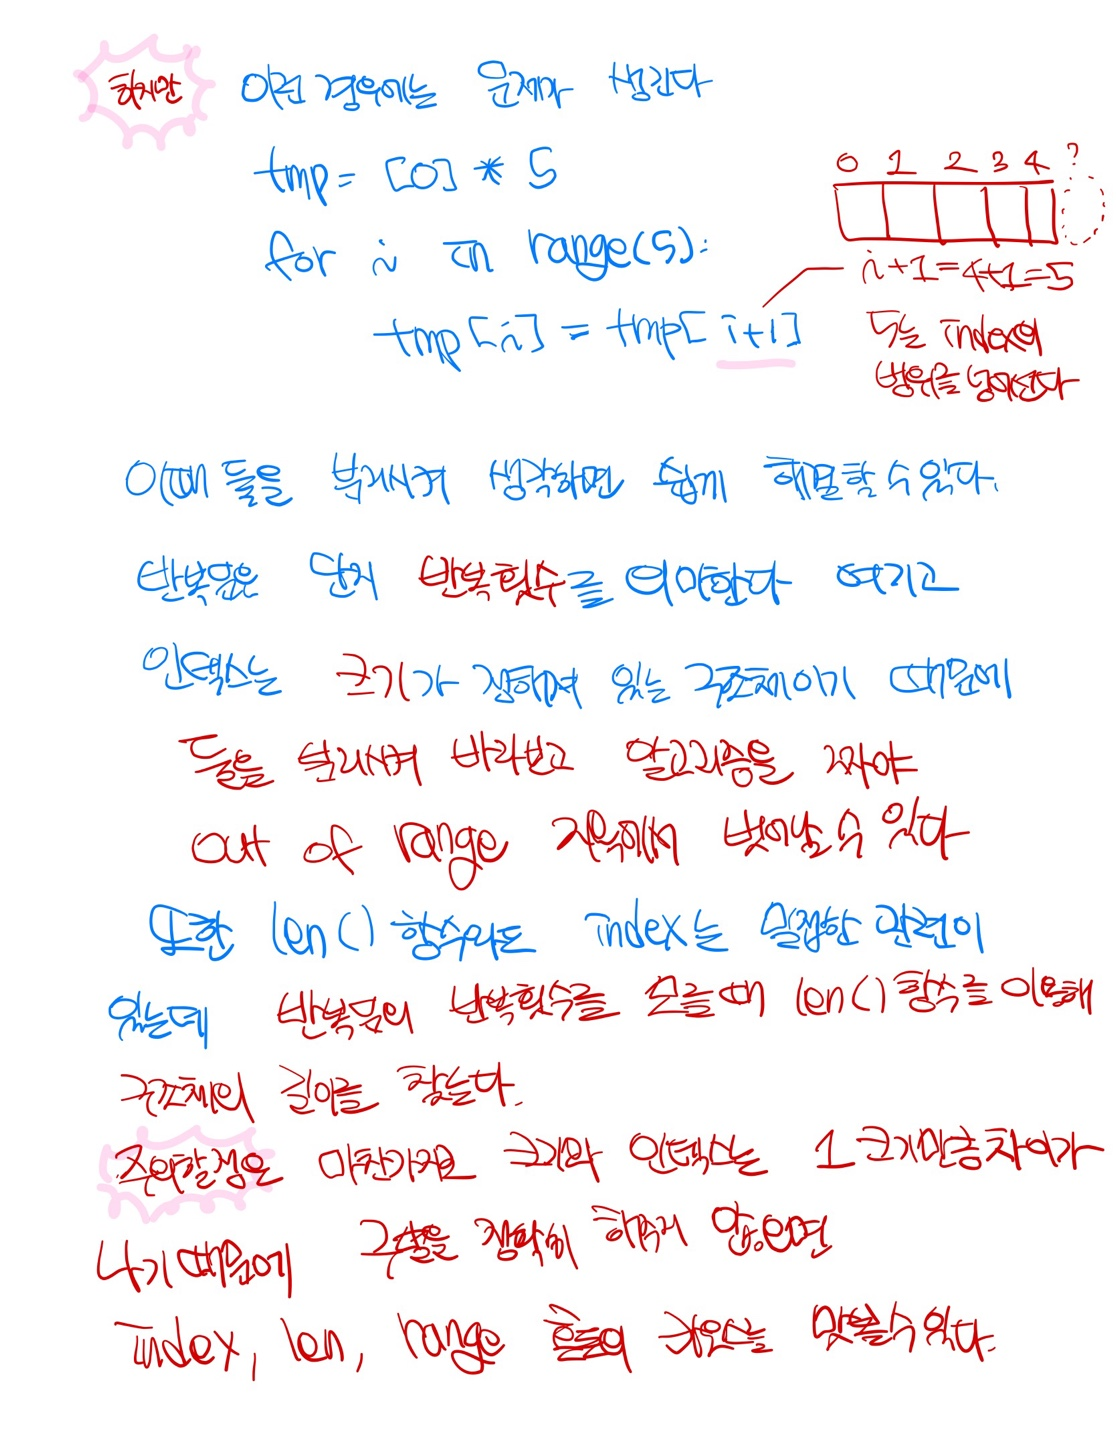 하지만 이런 경우에는 문제가 생긴다
tmp = [0] * 5
for i in range(5):
tmp[i] = tmp[i+1]
0 1 2 3 4 ?
i+1=4+1=5
5는 index의
범위를 넘어선다
이때 둘을 분리시켜 생각하면 쉽게 해결할 수 있다.
반복문은 단지 반복횟수를 의미한다 여기고
인덱스는 크기가 정해져 있는 구조체이기 때문에
둘을 분리시켜 바라보고 알고리즘을 짜야
out of range 지옥에서 벗어날 수 있다
또한 len() 함수와도 index는 밀접한 관련이
있는데 반복문의 반복횟수를 모를때 len() 함수를 이용해
구조체의 길이를 찾는다.
주의할점은 마찬가지로 크기와 인덱스는 1 크기만큼 차이가
나기 때문에 구별을 정확히 해주지 않으면
index, len, range 혼돈의 카오스를 맛볼수 있다.